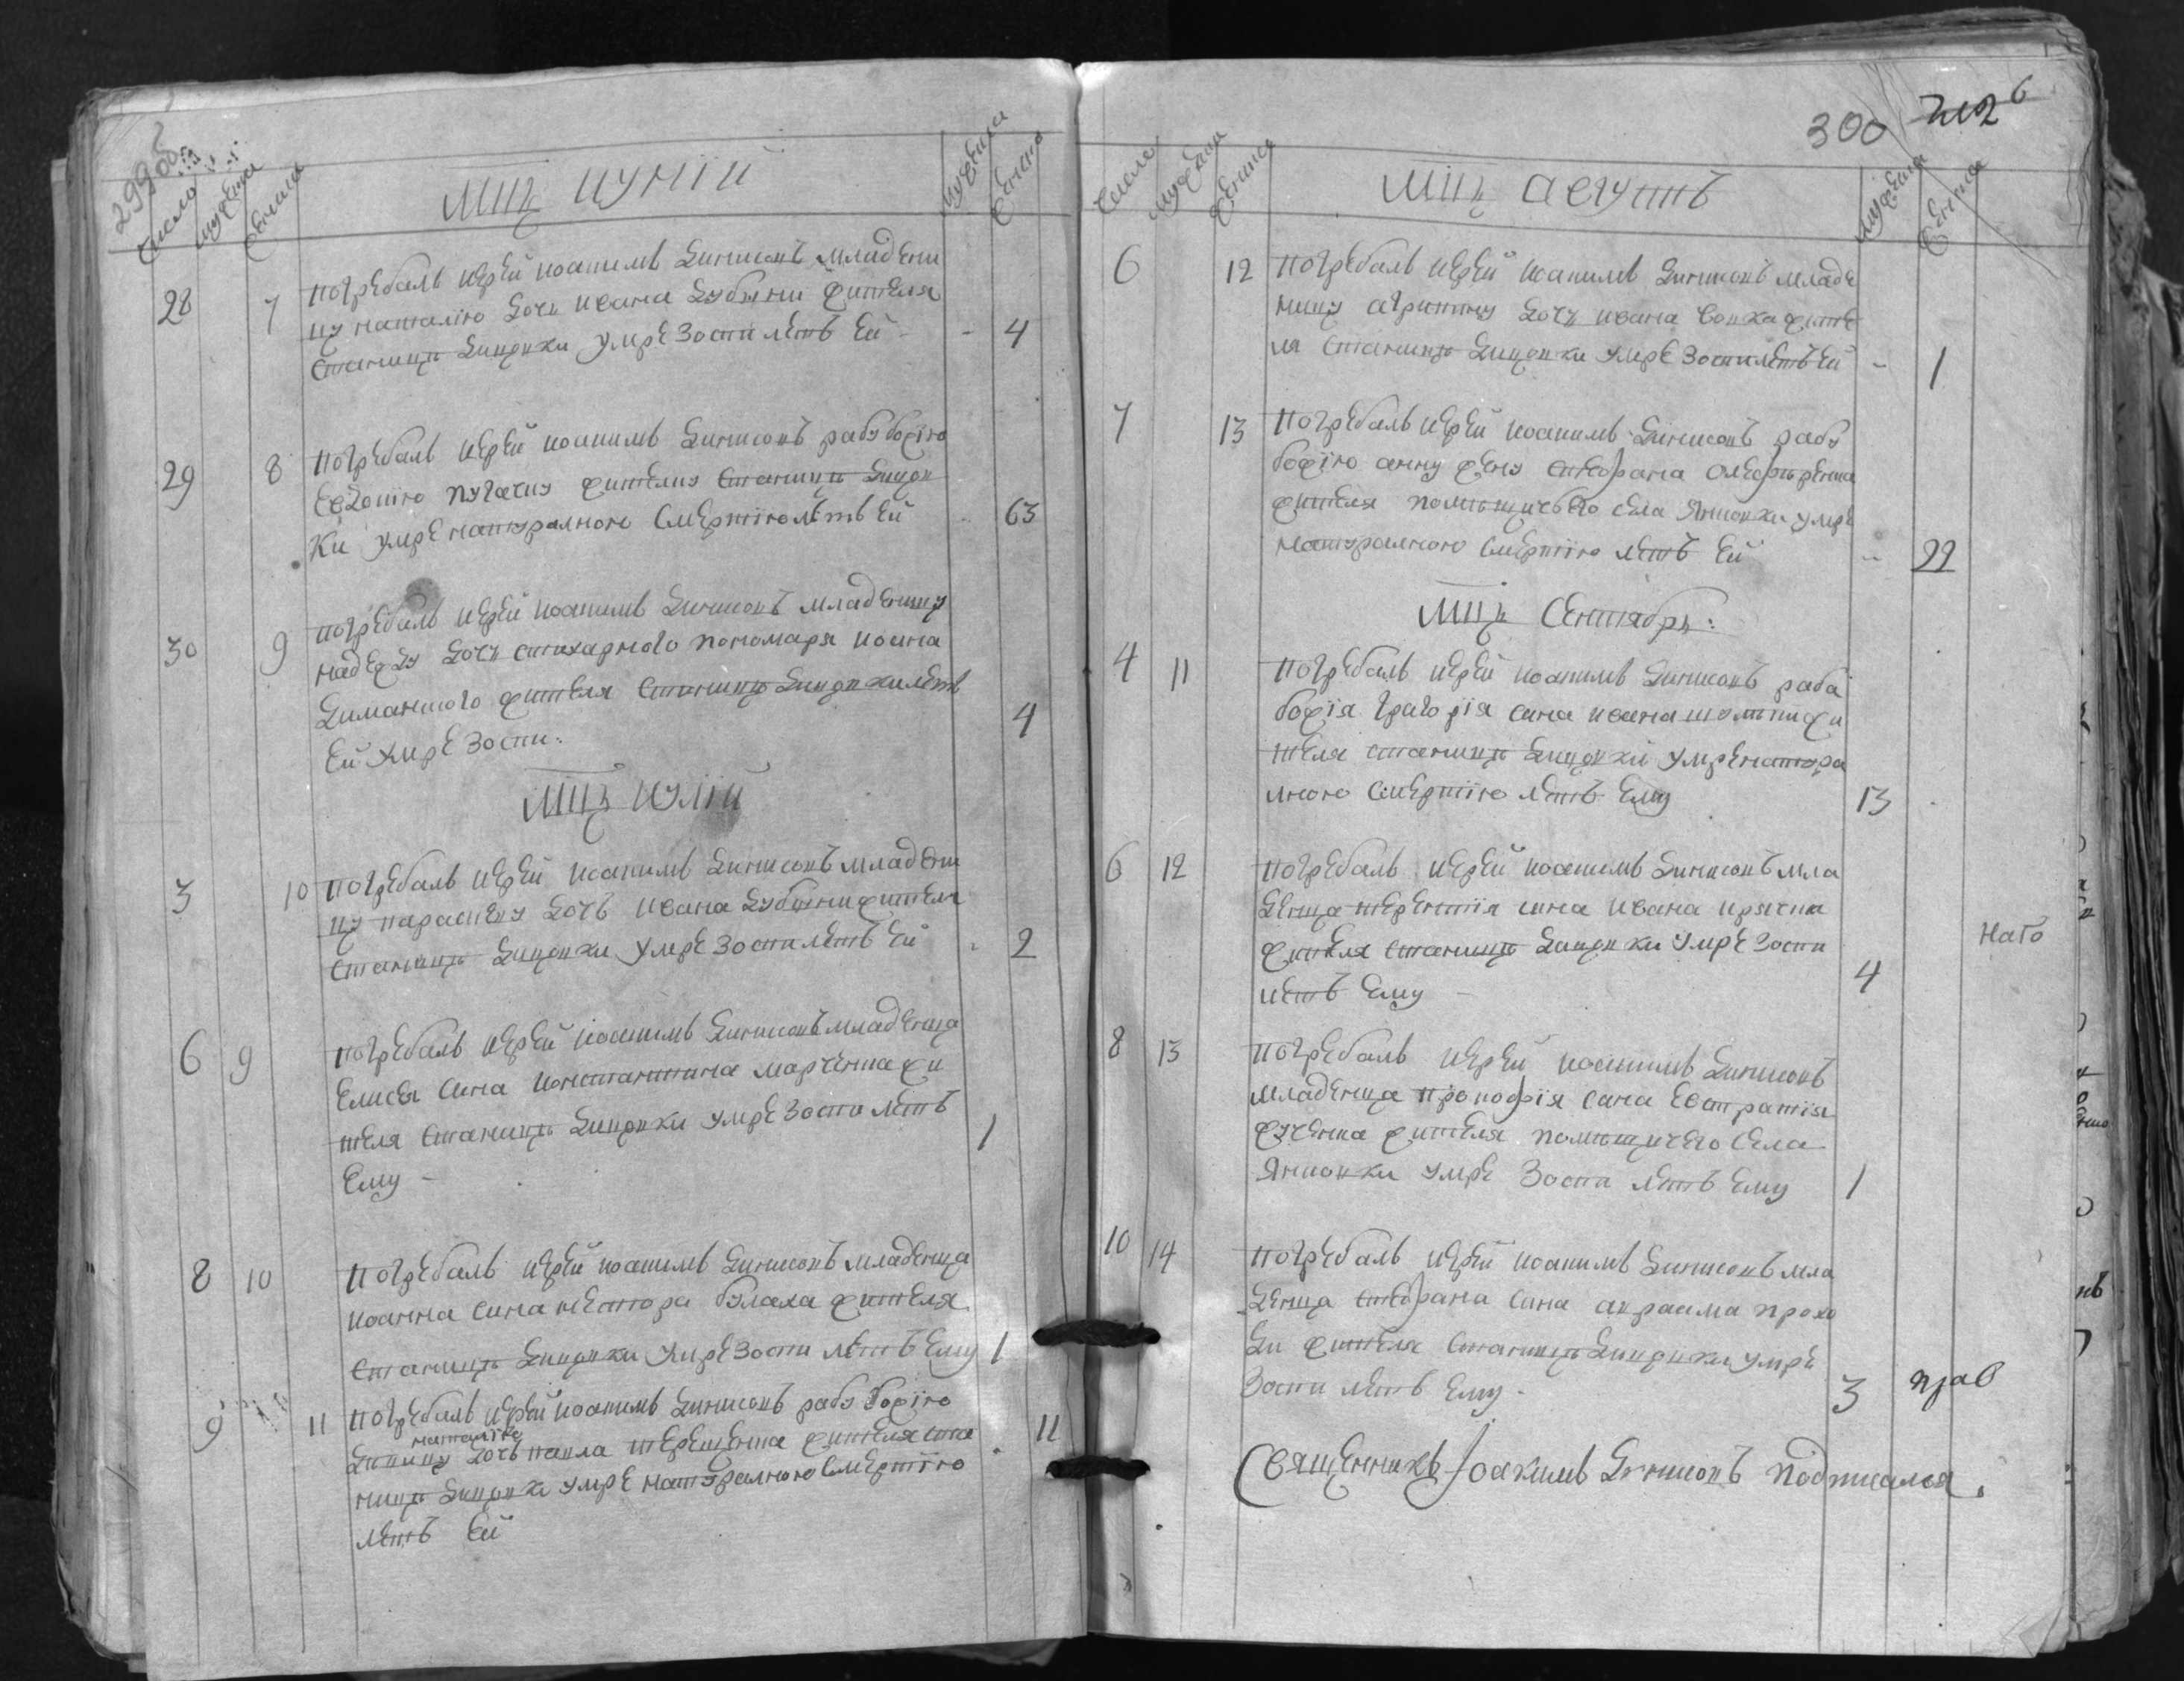 299об
число
мужеска
женска
мцъ иуній
мужеска
женска
28 7 погребалъ иерей иоакимъ Динисовъ младени
цу наталию дочь ивана дубини жителя
станицъ Дицовки умре зоспи летъ ей - 4
29 8 погребалъ иерей иоакимъ Динисовъ рабу божію
евдокію пугачку жителку станицъ дицов
ки умре натуралною смертію летъ ей 63
30 9 погребалъ иерей иоакимъ Динисовъ младеницу
надежду дочь стихарного пономаря иоана
Диманского жителя станицъ Дицовки летъ
ей умре зоспи: 4
мцъ иулій
3 10 погребалъ иерей иоакимъ Динисовъ младени
цу параскеву дочъ ивана дубини жителя
станицъ Дицовки умре зоспи летъ ей 2
6 9 погребалъ иерей иоакимъ Динисовъ младенца
елисея сина константина марченка жи
теля станицъ Дицовки умре зоспи летъ
ему - 1
8 10 погребалъ иерей иоакимъ Динисовъ младенца
иоанна сина нестора булаха жителя
станицъ Дицовки умре зоспи летъ ему 1
9 11 погребалъ иерей иоакимъ Динисовъ рабу божію
наталію
дочъ павла терещенка жителя ста
ницъ Дицовки умре натуралною смертію 11
летъ ей
300
число
мужеска
женска
мцъ августъ
мужеска
женска
6 12 погребалъ иерей иоакимъ Динисовъ младе
ницу агрипину дочь ивана вовка жите
ля станицъ Дицовки умре зоспи летъ ей - 1
7 13 погребалъ иерей иоакимъ Динисовъ рабу
божію анну жену стефана олефиренка
жителя помѣщичого села Яновки умре
натуралною смертію летъ ей 22
мцъ Сентябрь:
4 11 погребалъ иерей иоакимъ Динисовъ раба
божія григорія сина ивана жи
теля станицъ Дицовки умре натура
лною смертію летъ ему 13
6 12 погребалъ иерей иоакимъ Динисовъ мла
денца терентія сина ивана
жителя станицъ Дицовки умре зоспи
летъ ему - 4
нато
8 13 погребалъ иерей иоакимъ Динисовъ
младенца прокофія сина евстратія
жученка жителя помѣщичего села
Яновки умре зоспи летъ ему 1
10 14 погребалъ иерей иоакимъ Динисовъ мла
денца стефана сина авраама прохо
ди жителя станицъ Дицовки умре
зоспи летъ ему - 3
прав
Священникъ Іоакимъ Динисовъ подписался.